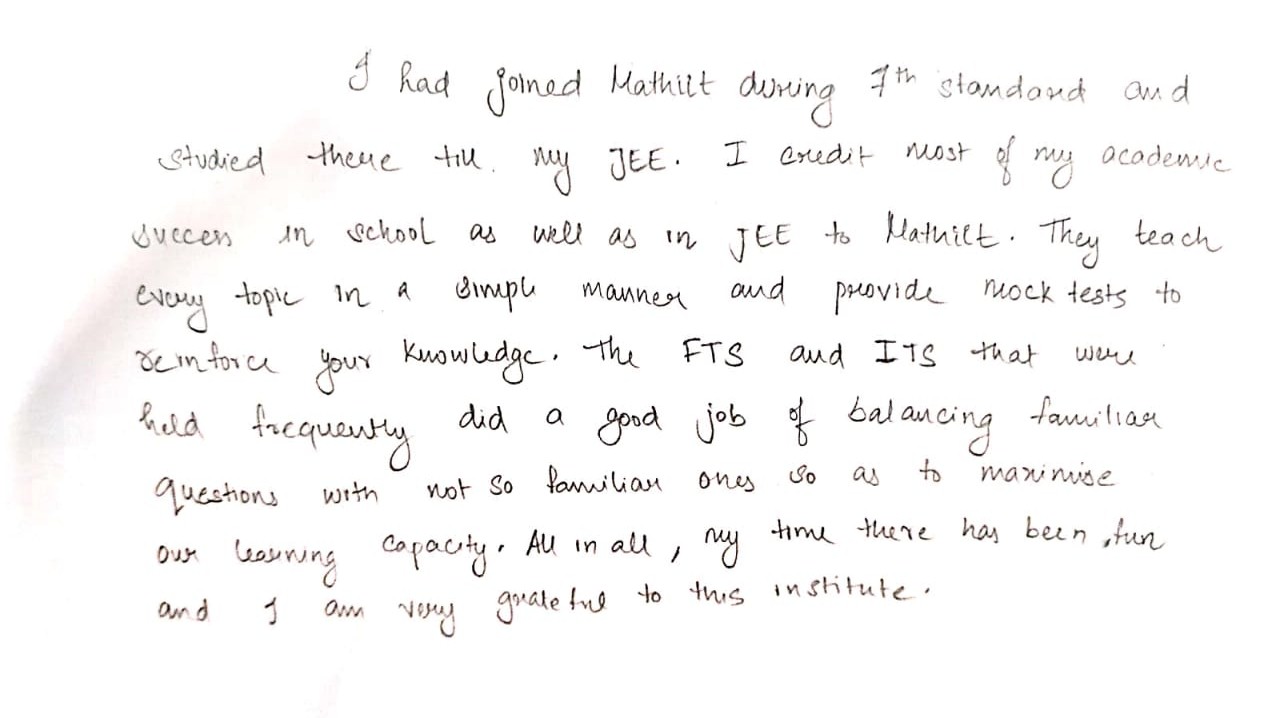 I had joined Mathilt during 7th standard and
studied there till. my JEE. I credit most of my academic
success in school as well as in JEE to Mathilt. They teach
every topic in a simple manner and provide mock tests to
reinforce your knowledge. The FTS and ITS that were
held frequently did a good job of balancing familiar
questions with not so familiar ones so as to maximise
our learning capacity. All in all, my time there has been fun
and I am very grateful to this institute.